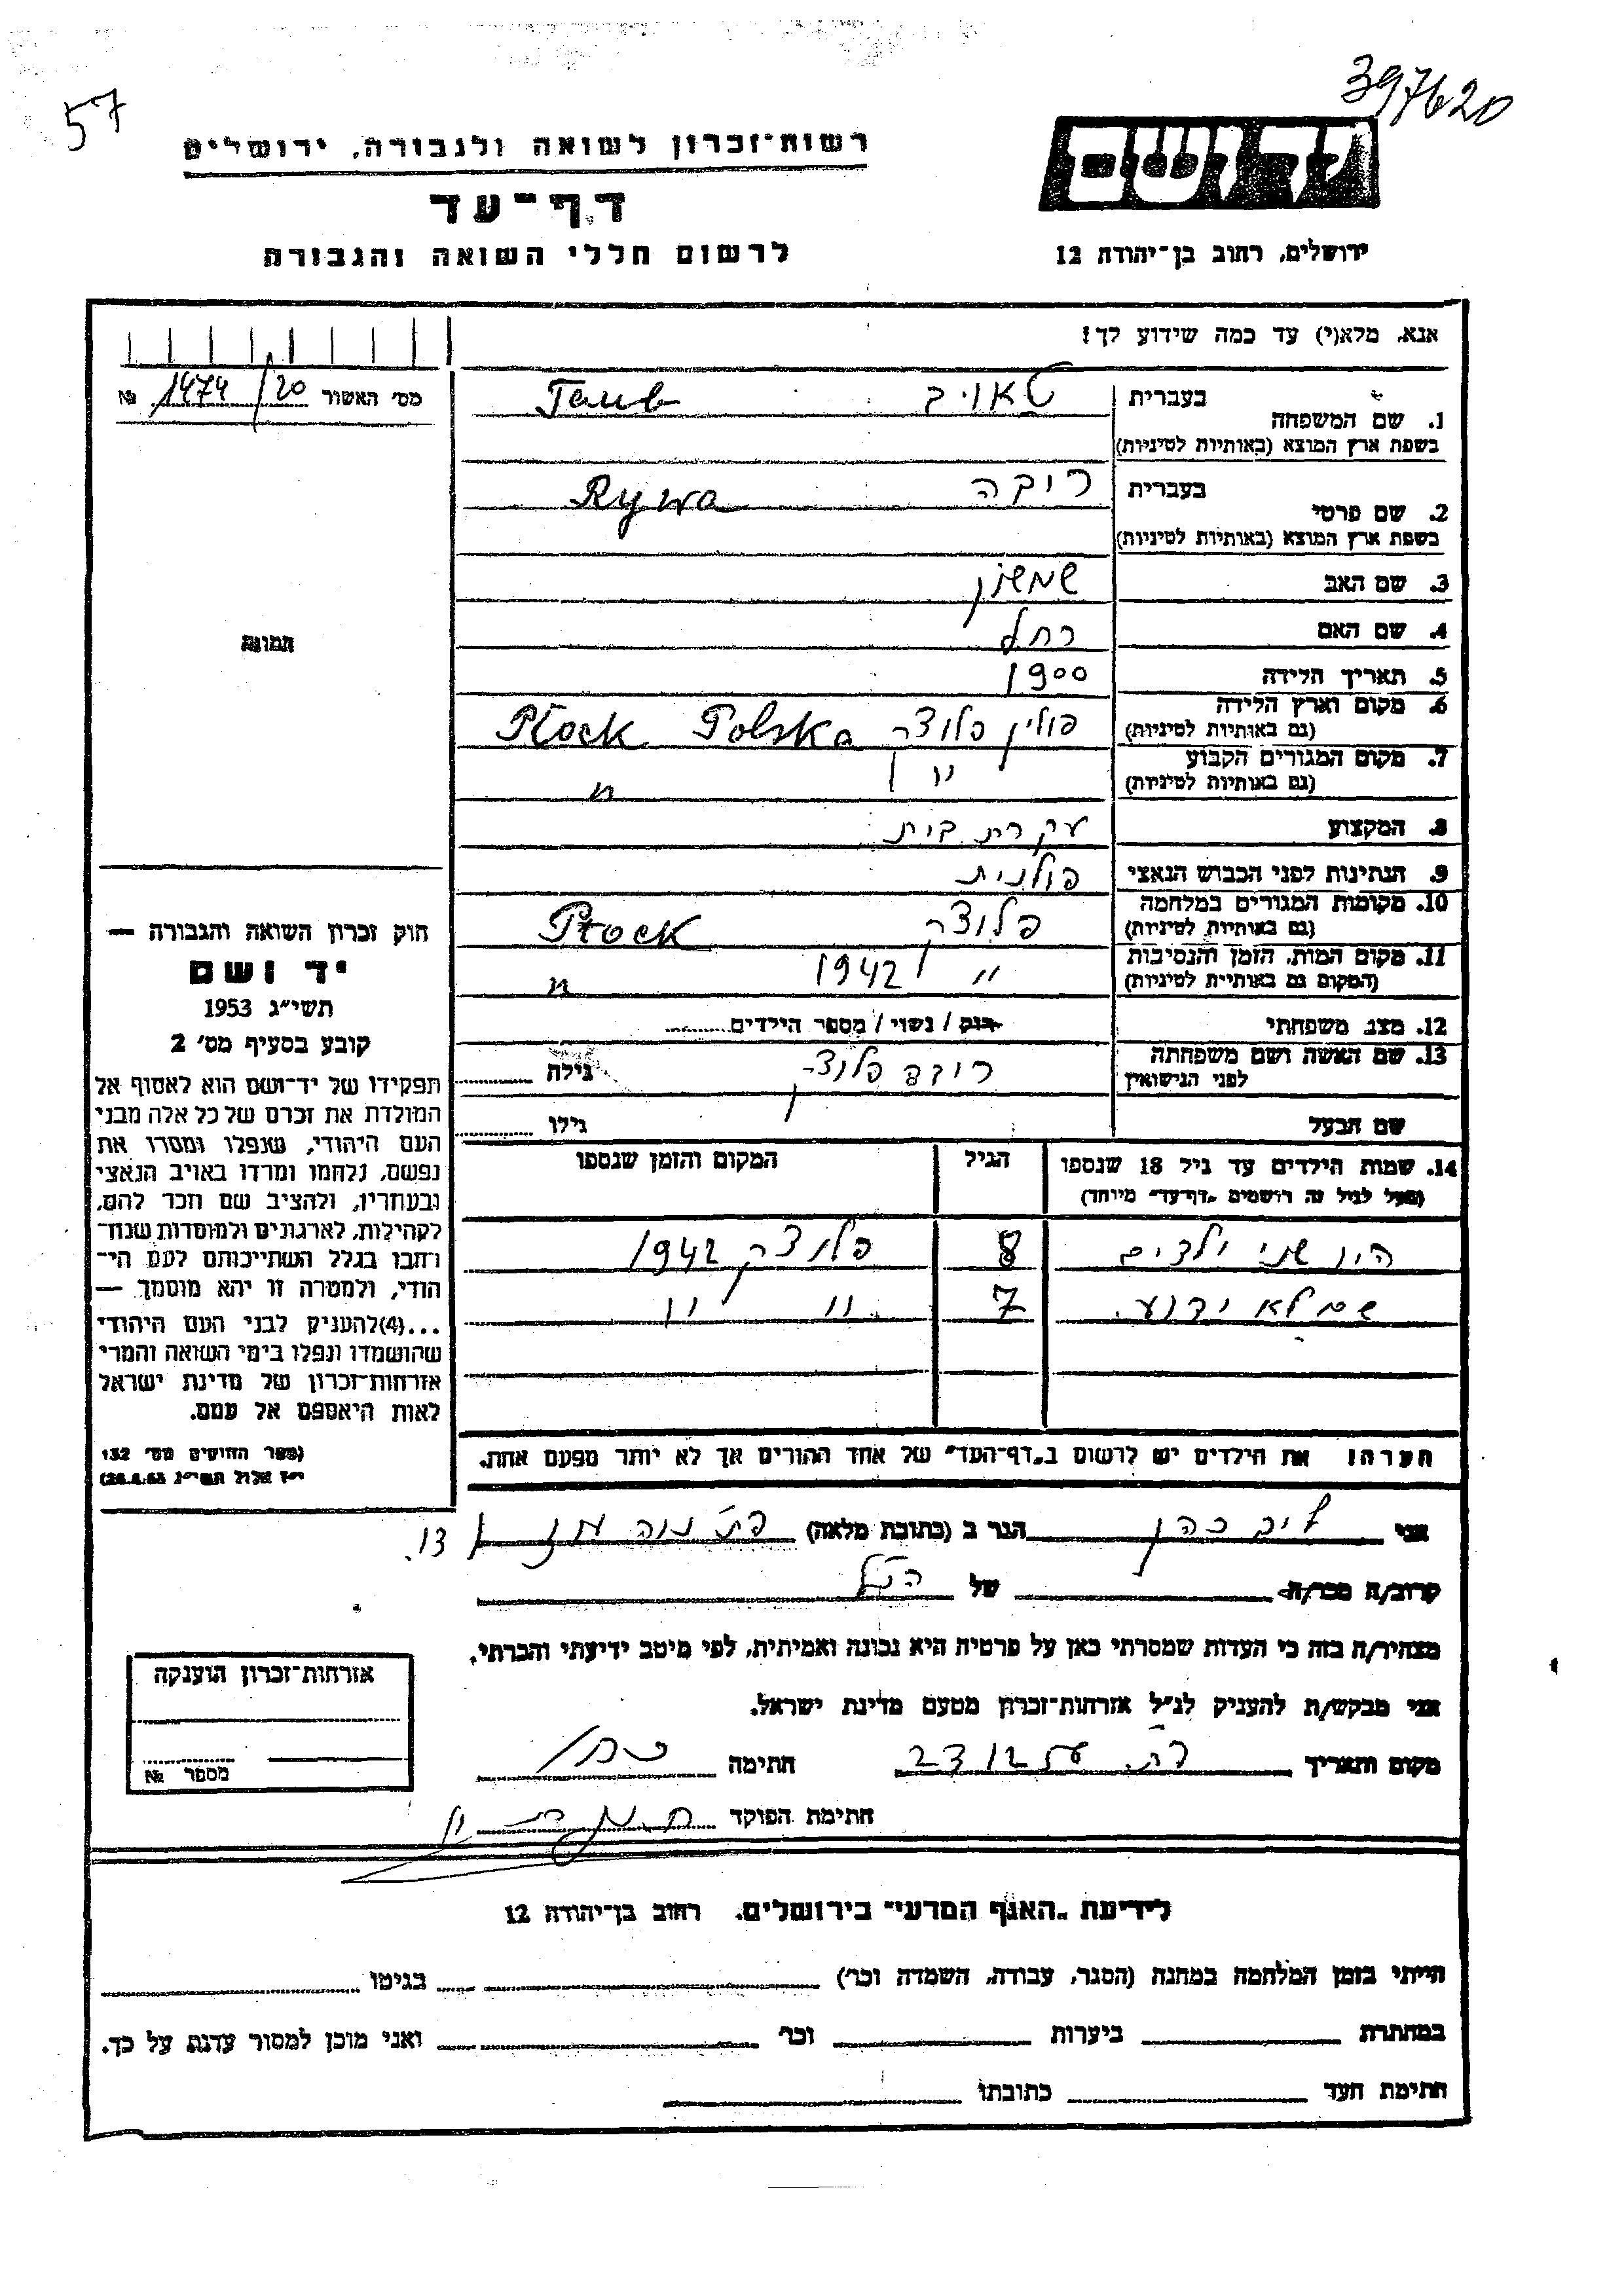 397620
57
רשות־זכרון לשואה ולגבורה, ירושלים
יד ושם
דף־עד
ירושלים, רחוב בן־יהודה 12
לרשום חללי השואה והגבורה
אנא, מלא(י) עד כמה שידוע לך!
מס' האשור 1474/20 №
1. שם המשפחה
בעברית טאויב Taub
בשפת ארץ המוצא (באותיות לטיניות)
2. שם פרטי
בעברית ריבקה Rywa
בשפת ארץ המוצא (באותיות לטיניות)
3. שם האב שמשון
4. שם האם רחל
5. תאריך הלידה 1900
6. מקום וארץ הלידה פולין פלוצק Płock Polska
(גם באותיות לטיניות)
7. מקום המגורים הקבוע " "
(גם באותיות לטיניות)
8. המקצוע עקרת בית
9. הנתינות לפני הכבוש הנאצי פולנית
10. מקומות המגורים במלחמה פלוצק Płock
(גם באותיות לטיניות)
11. מקום המות, הזמן והנסיבות " 1942 "
(המקום גם באותיות לטיניות)
12. מצב משפחתי רוק / נשוי / מספר הילדים
13. שם האשה ושם משפחתה לפני הנישואין גילה
שם הבעל גילו
14. שמות הילדים עד גיל 18 שנספו הגיל המקום והזמן שנספו
(מעל לגיל זה רושמים "דף־עד" מיוחד)
היו שני ילדים 8 פלוצק 1942
שם לא ידוע 7 " "
הערה: את הילדים יש לרשום ב"דף־העד" של אחד ההורים אך לא יותר מפעם אחת.
תמונה
חוק זכרון השואה והגבורה —
יד ושם
תשי"ג 1953
קובע בסעיף מס' 2
תפקידו של יד־ושם הוא לאסוף אל
המולדת את זכרם של כל אלה מבני
העם היהודי, שנפלו ומסרו את
נפשם, נלחמו ומרדו באויב הנאצי
ובעוזריו, ולהציב שם וזכר להם,
לקהילות, לארגונים ולמוסדות שנח־
רבו בגלל השתייכותם לעם הי־
הודי, ולמטרה זו יהא מוסמך —
...(4)להעניק לבני העם היהודי
שהושמדו ונפלו בימי השואה והמרי
אזרחות־זכרון של מדינת ישראל
לאות היאספם אל עמם.
(ספר החוקים מס' 132
י"ז אלול תשי"ג 28.8.53)
אני לייב כהן הגר ב (כתובת מלאה)
קרוב/ה מכר/ה של הנ"ל
מצהיר/ה בזה כי העדות שמסרתי כאן על פרטיה היא נכונה ואמיתית, לפי מיטב ידיעתי והכרתי.
אני מבקש/ת להעניק לנ"ל אזרחות־זכרון מטעם מדינת ישראל.
מקום ותאריך חתימה
חתימת הפוקד
אזרחות־זכרון הוענקה
מספר №
לידיעת "האגף המדעי" בירושלים, רחוב בן־יהודה 12
הייתי בזמן המלחמה במחנה (הסגר, עבודה, השמדה וכו') בגיטו
במחתרת ביערות וכו' ואני מוכן למסור עדות על כך.
חתימת העד כתובתו